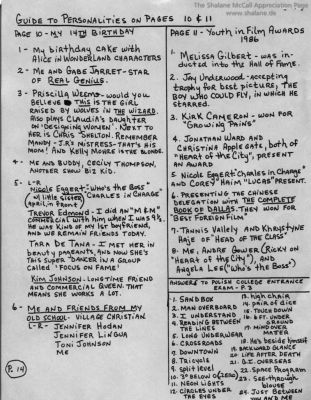 The Shalane McCall Appreciation Page
www.shalane.de
GUIDE TO PERSONALITIES ON PAGES 10 & 11
PAGE 10 - MY 14TH BIRTHDAY
1 - My birthday cake with
ALICE IN WONDERLAND CHARACTERS
2 - ME AND GABE JARRET - STAR
OF REAL GENIUS.
3 - PRISCILLA WEEMS - WOULD YOU
BELIEVE THIS IS THE GIRL
RAISED BY WOLVES IN THE WIZARD
ALSO PLAYS CLAUDIA'S DAUGHTER
ON "DESIGNING WOMEN". NEXT TO
HER IS CHRIS SHELTON. REMEMBER
MANDY - J.R.'S MISTRESS - THAT'S HIS
MOM! AND KELLY MOORE IS THE BLONDE.
4 - ME AND BUDDY, CECILY THOMPSON,
ANOTHER SHOW BIZ KID.
5 - L-R
NICOLE EGGERT - "WHO'S THE BOSS"
"CHARLES IN CHARGE"
(w/ little sister
April, in front)
TREVOR EDMOND - I DID AN "M&M"
COMMERCIAL WITH HIM WHEN I WAS 9½.
HE WAS KIND OF MY 1ST BOYFRIEND,
AND WE REMAIN FRIENDS TODAY.
TARA DE TANA - I MET HER IN
BEAUTY PAGEANTS, AND NOW SHE'S
THIS SUPER DANCER IN A GROUP
CALLED "FOCUS ON FAME"
KIM JOHNSON - LONGTIME FRIEND
AND COMMERCIAL QUEEN. THAT
MEANS SHE WORKS A LOT.
6 - ME AND FRIENDS FROM MY
OLD SCHOOL - VILLAGE CHRISTIAN
L-R- JENNIFER HODAN
JENNIFER LINGUA
TONI JOHNSON
ME
P. 14
PAGE 11 - YOUTH IN FILM AWARDS
1986
1. MELISSA GILBERT - WAS IN-
DUCTED INTO THE HALL OF FAME.
2. JAY UNDERWOOD - ACCEPTING
TROPHY FOR BEST PICTURE, THE
BOY WHO COULD FLY, IN WHICH HE
STARRED.
3. KIRK CAMERON - WON FOR
"GROWING PAINS"
4. JONATHAN WARD AND
CHRISTINA APPLEGATE, BOTH OF
"HEART OF THE CITY", PRESENT
AN AWARD
5. NICOLE EGGERT "CHARLES IN CHARGE"
AND COREY HAIM "LUCAS" PRESENT.
6. PRESENTING THE CHINESE
DELEGATION WITH THE COMPLETE
BOOK OF DALLAS. THEY WON FOR
"BEST FOREIGN FILM"
7. TANNIS VALLELY AND KHRYSTYNE
HAJE OF "HEAD OF THE CLASS"
8. ME, ANDRE GOWER (RICKY ON
"HEART OF THE CITY"), AND
ANGELA LEE ("WHO'S THE BOSS")
ANSWERS TO POLISH COLLEGE ENTRANCE
EXAM - P. 3
1. SANDBOX
2. MAN OVERBOARD
3. I UNDERSTAND
4. READING BETWEEN
THE LINES
5. LONG UNDERWEAR
6. CROSSROADS
7. DOWNTOWN
8. Tricycle
9. split level
10. 3° BELOW 0 (ZERO)
11. NEON LIGHTS
12. CIRCLES UNDER
THE EYES
13. high chair
14. pair of dice
15. TOUCH DOWN
16. 6 FT. UNDER
GROUND
17. MIND OVER
MATTER
18. He's beside himself
19. BACKWARD GLANCE
20. LIFE AFTER DEATH
21. G.I. OVERSEAS
22. Space Program
23. See-through
blouse
24. Just between
YOU AND ME